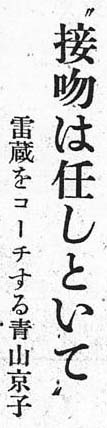 〝接吻は任しといて〟
雷蔵をコーチする青山京子